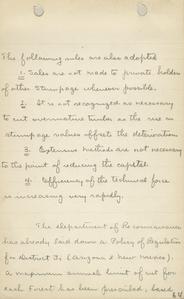 The following rules are also adopted
1. Sales are not made to private holders
of other stumpage whenever possible.
2. It is not recognized as necessary
to cut overmature timber as the rise in
stumpage values offsets the deterioration.
3. Extensive methods are not necessary
to the point of reducing the capital.
4. Efficiency of the technical force
is increasing very rapidly.
The department of
has already laid down a Policy of Regulation
for District 3, (Arizona & New Mexico).
A maximum annual limit of cut for
each Forest has been prescribed, based